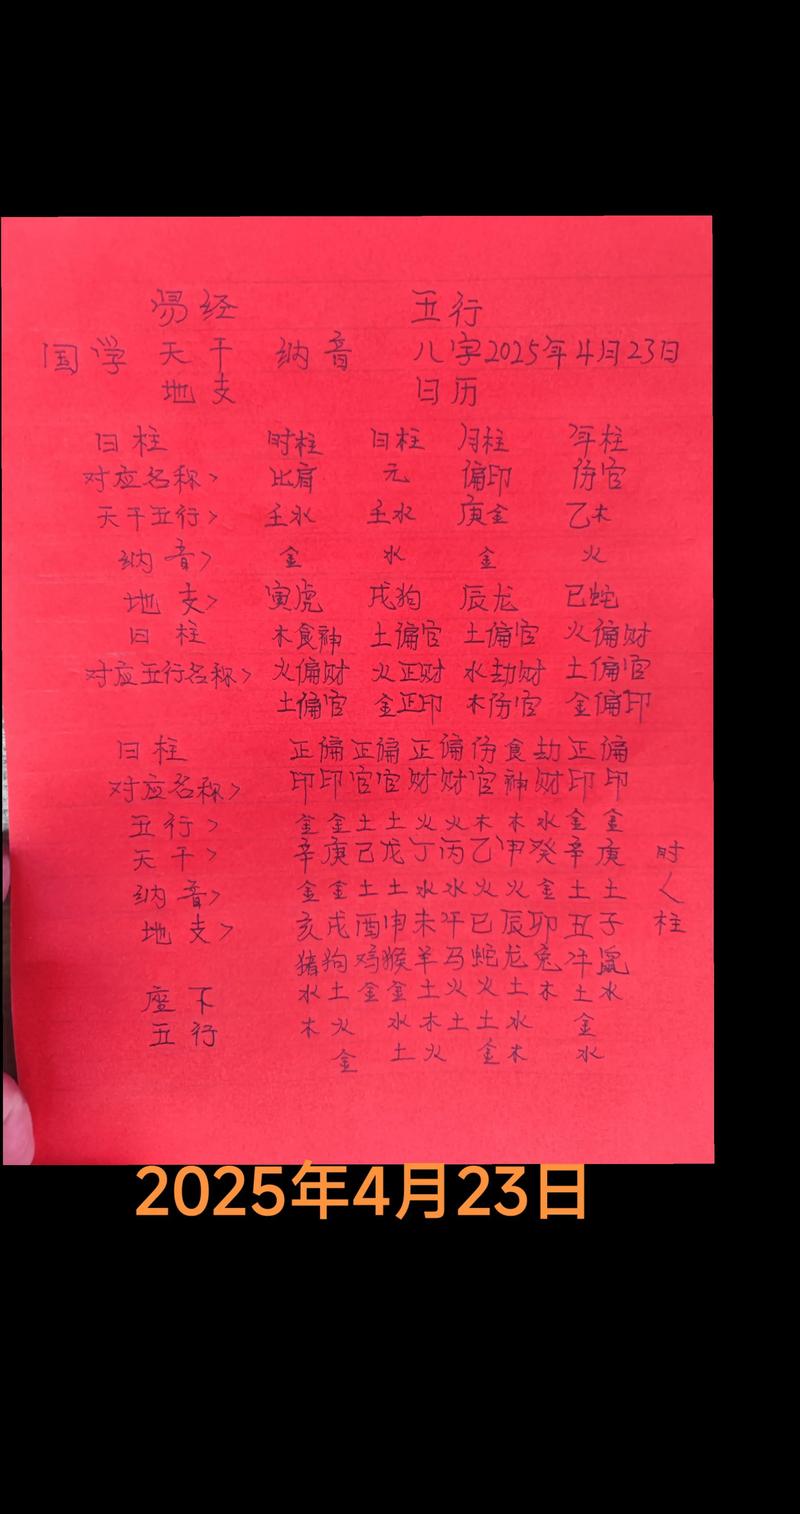 易经 五行
国学 天干 纳音 八字2025年4月23日
地支 日历
日柱 时柱 日柱 月柱 年柱
对应名称> 比肩 元 偏印 伤官
天干五行> 壬水 壬水 庚金 乙木
纳音> 金 水 金 火
地支> 寅虎 戌狗 辰龙 巳蛇
日柱 木食神 土偏官 土偏官 火偏财
对应五行名称> 火偏财 火正财 水劫财 土偏官
土偏官 金正印 木伤官 金偏印
日柱 正偏正偏正偏伤食劫正偏
对应名称> 印印官官财财官神财印印
五行> 金金土土火火木木水金金
天干> 辛庚己戊丁丙乙甲癸辛庚 时
纳音> 金金土土水水火火金土土 人
地支> 亥戌酉申未午巳辰卯丑子 柱
猪狗鸡猴羊马蛇龙兔牛鼠
座下 水土金金土火火土木土水
五行 木火 水木土土水 金
金 土火 金木 水
2025年4月23日